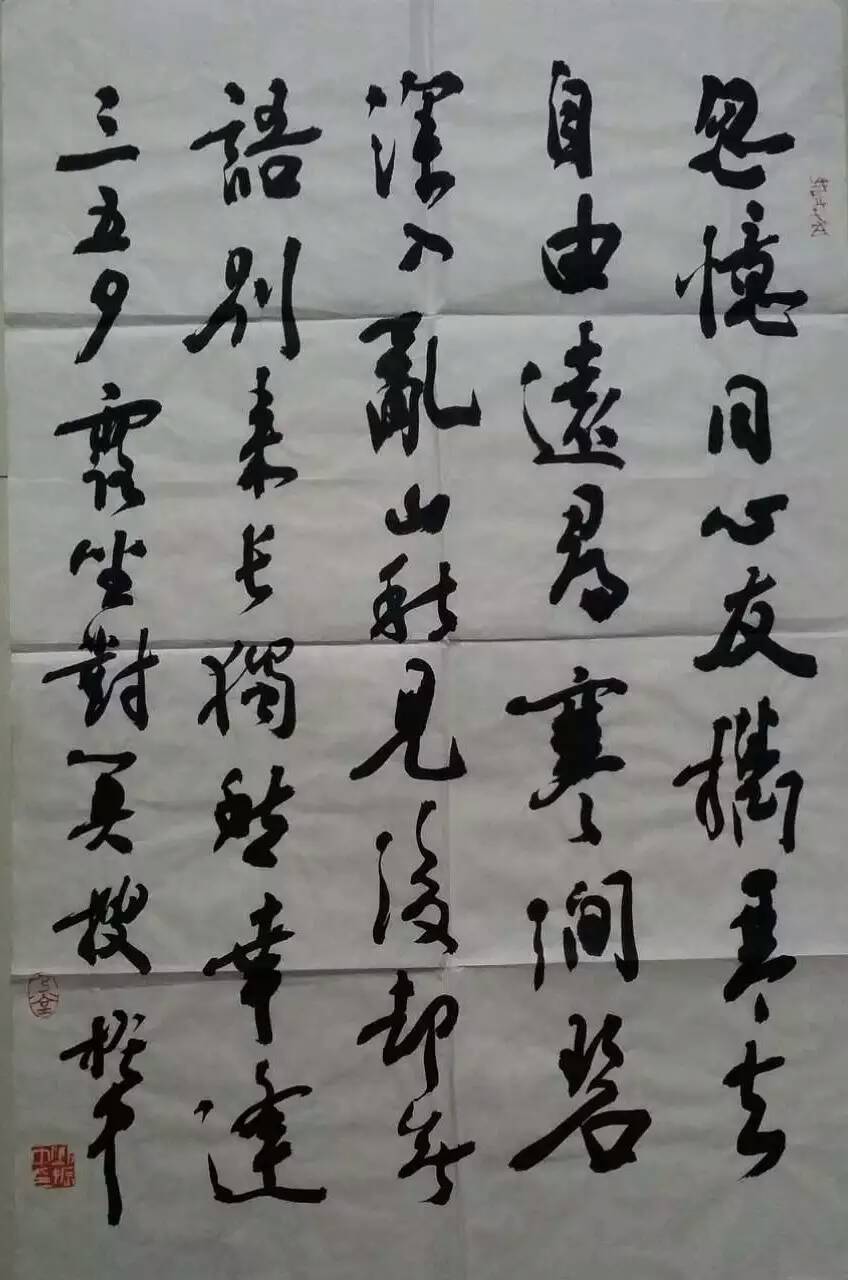 思憶同心友攜琴去
自由遠尋寒澗碧
深入亂山秋見後却無
語別來長獨愁幸逢
三五夕露坐對冥搜